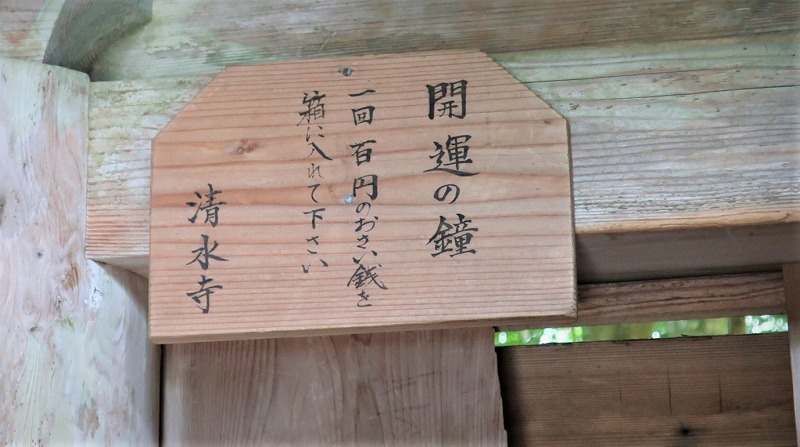 開運の鐘
一回百円のおさい銭を
箱に入れて下さい
清水寺